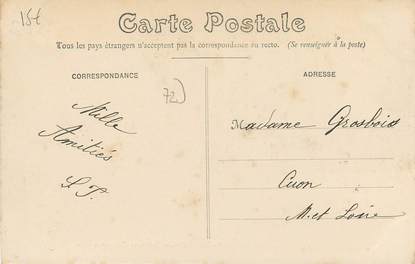 15€
Carte Postale
Tous les pays étrangers n'acceptent pas la correspondance au recto. (Se renseigner à la poste)
CORRESPONDANCE
ADRESSE
72)
Mille
Amitiés
S. P.
Madame Grosbois
Cuon
M. et Loire